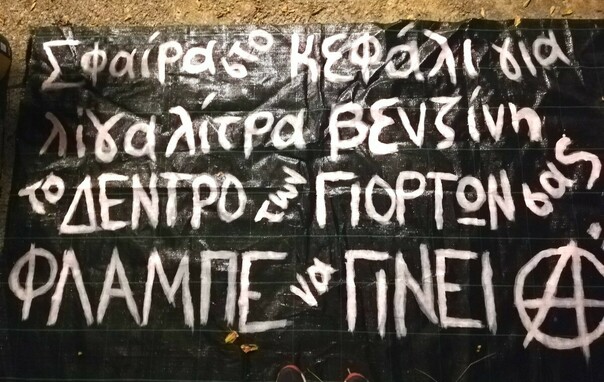 Σφαίρα στο κεφάλι για
λίγα λίτρα βενζίνη
το ΔΕΝΤΡΟ των ΓΙΟΡΤΩΝ σας
ΦΛΑΜΠΕ να ΓΙΝΕΙ Α